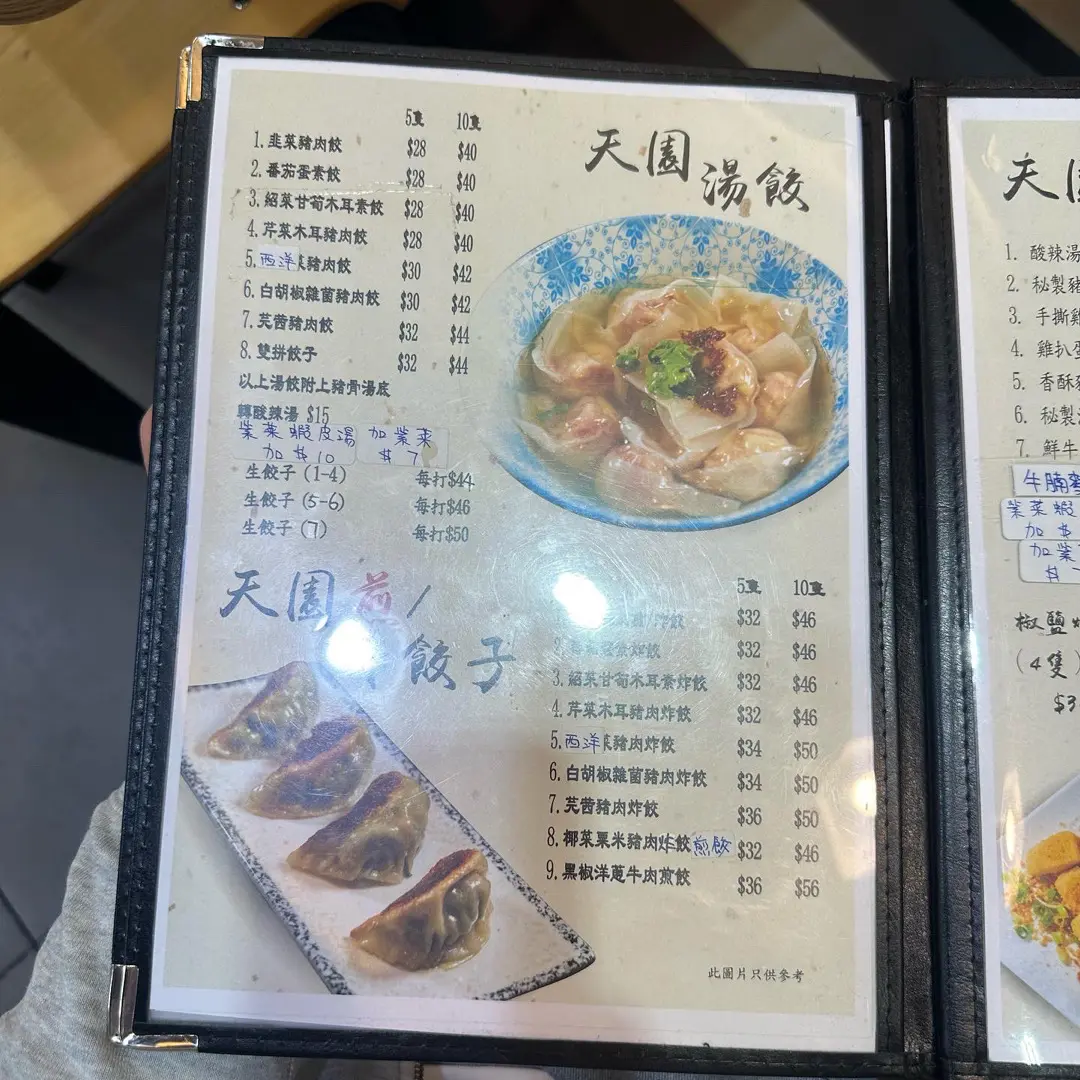 天園湯餃
5隻 10隻
1. 韭菜豬肉餃 $28 $40
2. 番茄蛋素餃 $28 $40
3. 紹菜甘荀木耳素餃 $28 $40
4. 芹菜木耳豬肉餃 $28 $40
5. 西洋菜豬肉餃 $30 $42
6. 白胡椒雜菌豬肉餃 $30 $42
7. 芫茜豬肉餃 $32 $44
8. 雙拼餃子 $32 $44
以上湯餃附上豬骨湯底
轉酸辣湯 $15
紫菜蝦皮湯 加紫菜
加$10 $7
生餃子 (1-4) 每打$44
生餃子 (5-6) 每打$46
生餃子 (7) 每打$50
天園煎/
餃子
5隻 10隻
炸餃 $32 $46
炸餃 $32 $46
3. 紹菜甘荀木耳素炸餃 $32 $46
4. 芹菜木耳豬肉炸餃 $32 $46
5. 西洋菜豬肉炸餃 $34 $50
6. 白胡椒雜菌豬肉炸餃 $34 $50
7. 芫茜豬肉炸餃 $36 $50
8. 椰菜粟米豬肉炸餃 煎餃 $32 $46
9. 黑椒洋蔥牛肉煎餃 $36 $56
此圖片只供參考
天
1. 酸辣湯
2. 秘製
3. 手撕
4. 雞扒
5. 香酥
6. 秘製
7. 鮮牛
牛腩
紫菜蝦
加$
加紫
$
椒鹽
(4隻)
$3